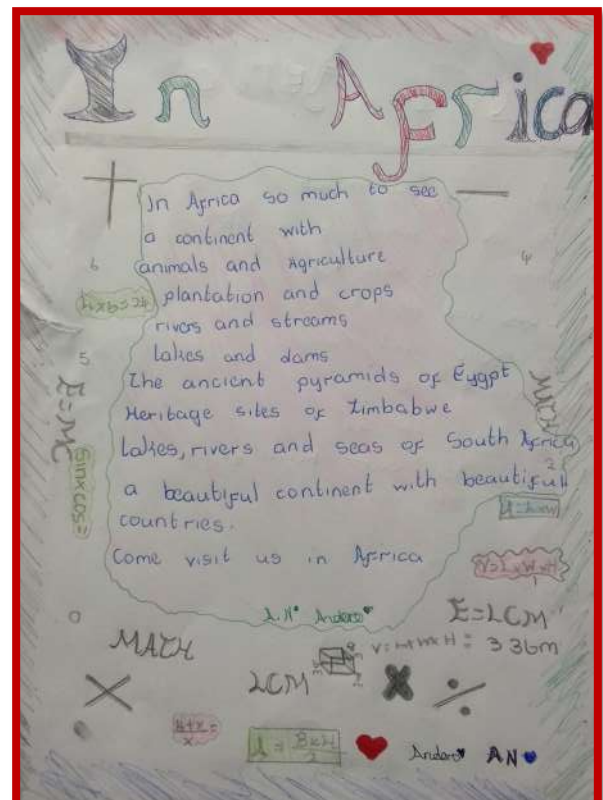 In Africa
In Africa so much to see
a continent with
animals and Agriculture
plantation and crops
rivers and streams
lakes and dams
The ancient pyramids of Eygpt
Heritage sites of Zimbabwe
Lakes, rivers and seas of South Africa
a beautiful continent with beautifull
countries.
Come visit us in Africa
A.N. Andero
6
4
4x6=24
5
E=MC
MATH
sinxcos=
2
V=LxWxH
0
E=LCM
MATH
= 336m
LCM
Andero AN